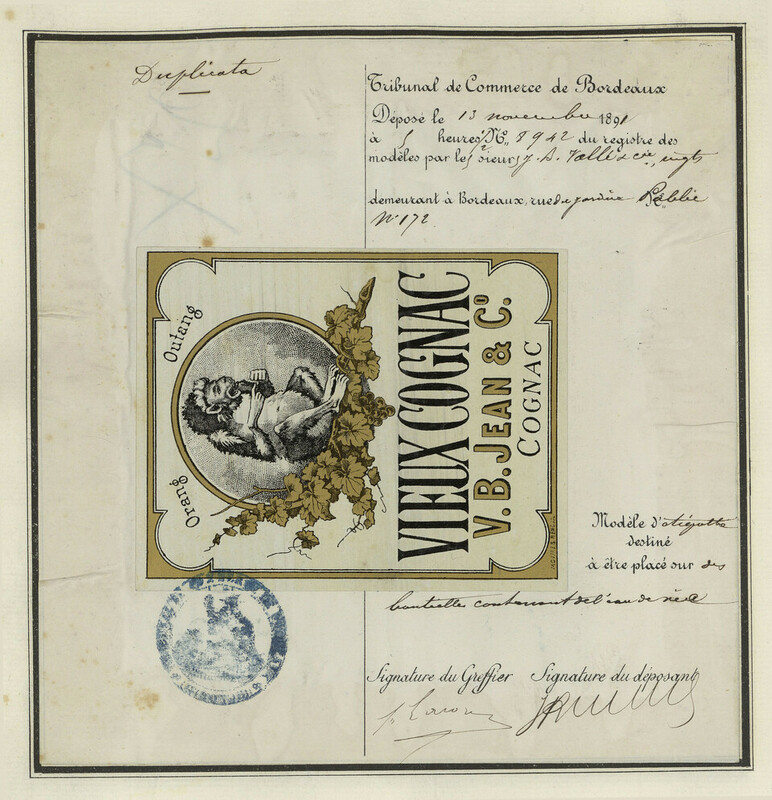 Duplicata
Tribunal de Commerce de Bordeaux
Déposé le 13 novembre 1891
à 5 heures N° 8942 du registre des
modèles par le sieurs J. A. & cie
demeurant à Bordeaux, rue de jardin Public
N° 172
Orang Outang
VIEUX COGNAC
V.B. JEAN & Co.
COGNAC
Modèle d'étiquette
destiné
à être placé sur des
bouteilles contenant de l'eau de vie
Signature du Greffier Signature du déposant